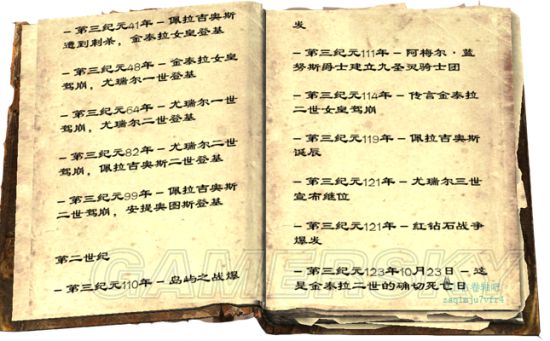 - 第三纪元41年 - 佩拉吉奥斯
遭到刺杀，金泰拉女皇登基
- 第三纪元48年 - 金泰拉女皇
驾崩，尤瑞尔一世登基
- 第三纪元64年 - 尤瑞尔一世
驾崩，尤瑞尔二世登基
- 第三纪元82年 - 尤瑞尔二世
驾崩，佩拉吉奥斯二世登基
- 第三纪元99年 - 佩拉吉奥斯
二世驾崩，安提奥图斯登基
第二世纪
- 第三纪元110年 - 岛屿之战爆
发
- 第三纪元111年 - 阿梅尔·蓝
努斯爵士建立九圣灵骑士团
- 第三纪元114年 - 传言金泰拉
二世女皇驾崩
- 第三纪元119年 - 佩拉吉奥斯
诞辰
- 第三纪元121年 - 尤瑞尔三世
宣布继位
- 第三纪元121年 - 红钻石战争
爆发
- 第三纪元123年10月23日 - 这
是金泰拉二世的确切死亡日
GAMERSKY
卷轴吧
zaq1mju7vfr4